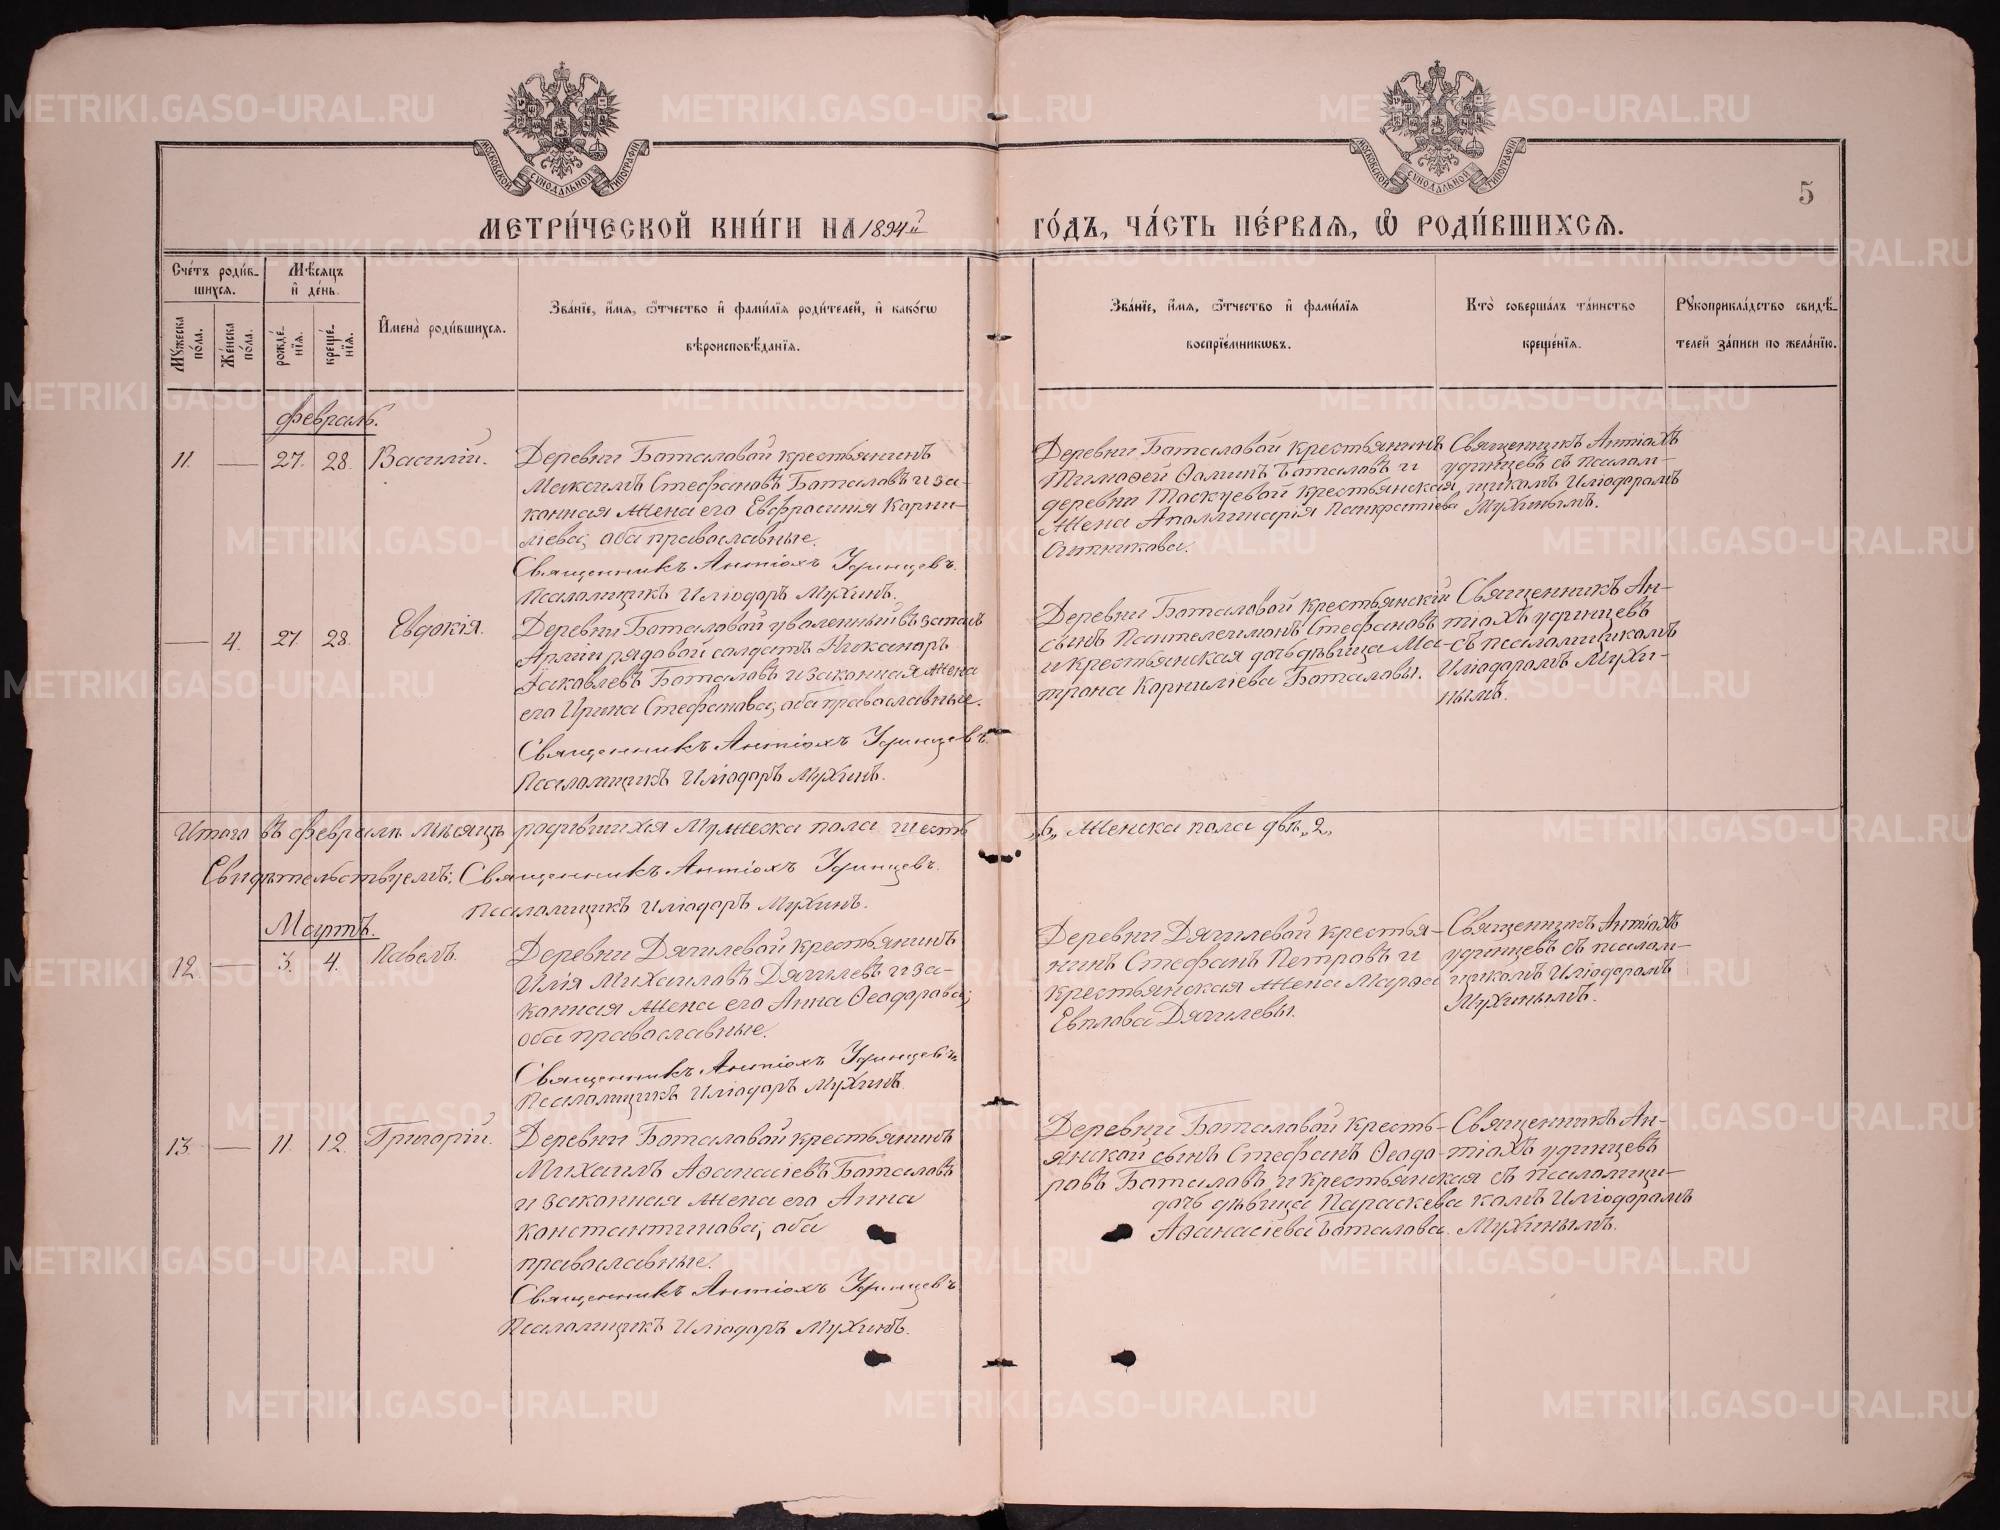 МОСКОВСКОЙ СѴНОДАЛЬНОЙ ТИПОГРАФІИ
МОСКОВСКОЙ СѴНОДАЛЬНОЙ ТИПОГРАФІИ
5
МЕТРИ́ЧЕСКОЙ КНИ́ГИ НА 1894й
ГО́ДЪ, ЧА́СТЬ ПЕ́РВАЯ, Ѡ҆ РОДИ́ВШИХСЯ.
Сче́тъ роди́в-
шихся.
Мѣ́сяцъ
и҆ де́нь.
И҆мена̀ роди́вшихся.
Зва́нїе, и҆́мя, ѻ҆́тчество и҆ фами́лїя роди́телей, и҆ како́гѡ
вѣроисповѣ́данїя.
Зва́нїе, и҆́мя, ѻ҆́тчество и҆ фами́лїя
воспрїе́мникѡвъ.
Кто̀ соверша́лъ та́инство
креще́нїя.
Рꙋкоприкла́дство свидѣ́-
телей за́писи по жела́нїю.
Мꙋ́жеска
по́ла.
Же́нска
по́ла.
рожде́-
нїя.
креще́-
нїя.
Февраль.
11. — 27. 28. Василій.
Деревни Баталовой крестьянинъ
Максимъ Стефановъ Баталовъ и за-
конная жена его Евфрасинія Корни-
лиева; оба православные.
Священникъ Антіохъ Удинцевъ.
Псаломщикъ Иліодоръ Мухинъ.
Деревни Баталовой крестьянинъ
Тимофей Фаминъ Баталовъ и
деревни Таскуевой крестьянская
жена Аполлинарія Панкратіева
Ситникова.
Священникъ Антіохъ
Удинцевъ съ псалом-
щикомъ Иліодоромъ
Мухинымъ.
— 4. 27. 28. Евдокія.
Деревни Баталовой уволенный въ запасъ
Арміи рядовой солдатъ Никаноръ
Іаковлевъ Баталовъ и законная жена
его Ирина Стефанова; оба православные.
Священникъ Антіохъ Удинцевъ.
Псаломщикъ Иліодоръ Мухинъ.
Деревни Баталовой крестьянскій
сынъ Пантелеимонъ Стефановъ
и крестьянская дочь дѣвица Ма-
трона Корниліева Баталовы.
Священникъ Ан-
тіохъ Удинцевъ
съ псаломщикомъ
Иліодоромъ Мухи-
нымъ.
Итого въ февралѣ мѣсяцѣ родившихся мужеска пола шесть „6„ женска пола двѣ „2„
Свидѣтельствуемъ: Священникъ Антіохъ Удинцевъ.
Псаломщикъ Иліодоръ Мухинъ.
Мартъ.
12. — 3. 4. Павелъ.
Деревни Дягилевой крестьянинъ
Илія Михаиловъ Дягилевъ и за-
конная жена его Анна Феодорова;
оба православные.
Священникъ Антіохъ Удинцевъ.
Псаломщикъ Иліодоръ Мухинъ.
Деревни Дягилевой крестья-
нинъ Стефанъ Петровъ и
крестьянская жена Марфа
Евплова Дягилевы.
Священникъ Антіохъ
Удинцевъ съ псалом-
щикомъ Иліодоромъ
Мухинымъ.
13. — 11. 12. Григорій.
Деревни Баталовой крестьянинъ
Михаилъ Афанасіевъ Баталовъ
и законная жена его Анна
Константинова; оба
православные.
Священникъ Антіохъ Удинцевъ
Псаломщикъ Иліодоръ Мухинъ.
Деревни Баталовой кресть-
янской сынъ Стефанъ Феодо-
ровъ Баталовъ и крестьянская
дочь дѣвица Параскева
Афанасіева Баталова.
Священникъ Ан-
тіохъ Удинцевъ
съ псаломщи-
комъ Иліодоромъ
Мухинымъ.
METRIKI.GASO-URAL.RU